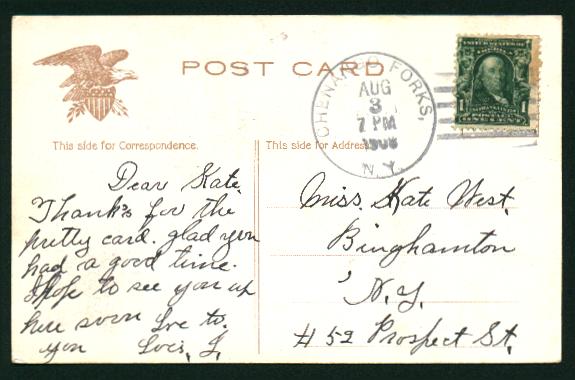 POST CARD
CHENANGO FORKS,
AUG
3
7 PM
1908
N.Y.
UNITED STATES OF AMERICA
1 1
POSTAGE
ONE CENT
This side for Correspondence.
This side for Address
Dear Kate.
Thanks for the
pretty card. glad you
had a good time.
Hope to see you up
here soon Love to.
you Lois. G.
Miss. Kate West.
Binghamton
N.Y.
# 52 Prospect St.